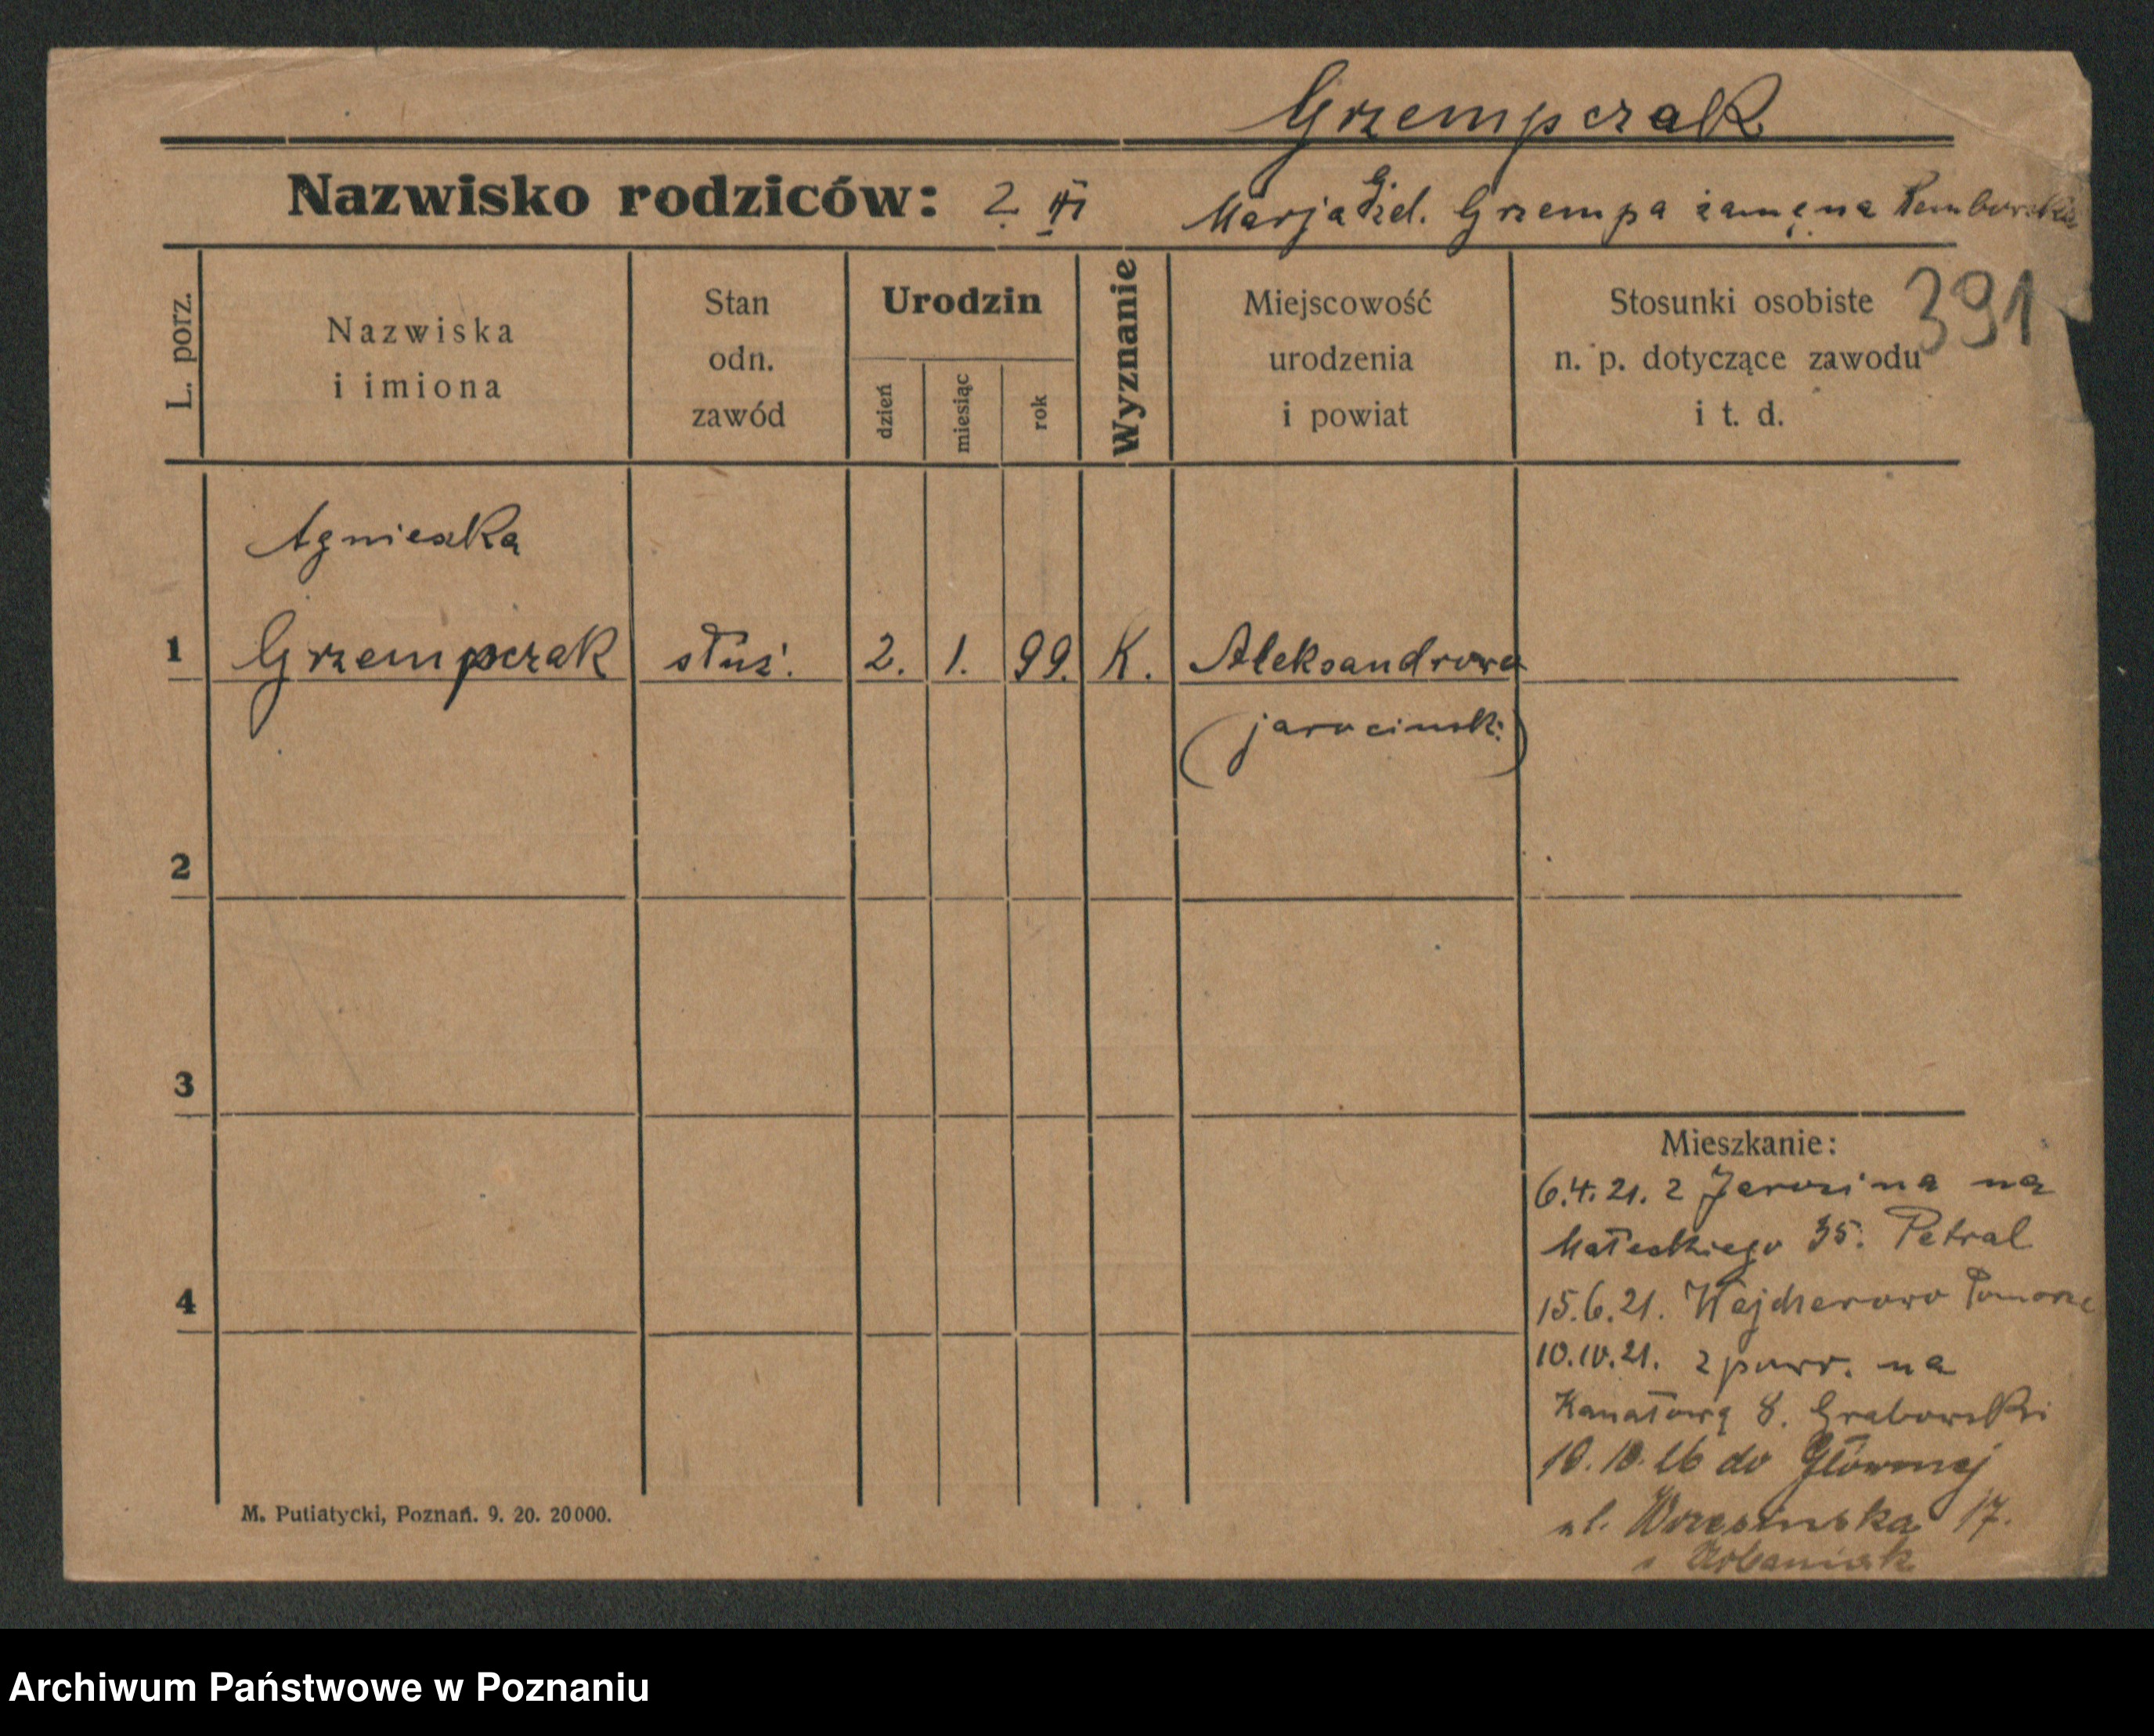 Grzempczak
Nazwisko rodziców: 2. Marja Gzd. Grzempa zamężna
L. porz.
Nazwiska i imiona
Stan odn. zawód
Urodzin
dzień
miesiąc
rok
Wyznanie
Miejscowość urodzenia i powiat
Stosunki osobiste n. p. dotyczące zawodu i t. d.
391
Agnieszka
1 Grzempczak służ. 2. 1. 99. K. Aleksandrowo
(jarocinsk.)
2
3
Mieszkanie:
6.4.21. z Jarocina na
Małeckiego 35. Petral
4
15.6.21. Wejcherowo Pomorze
10.10.21. z powr. na
Kanałową 8. Grabowski
10.10.26 do Głównej
ul. Wrzesinska 17.
Urbaniak
M. Putiatycki, Poznań. 9. 20. 20000.
Archiwum Państwowe w Poznaniu